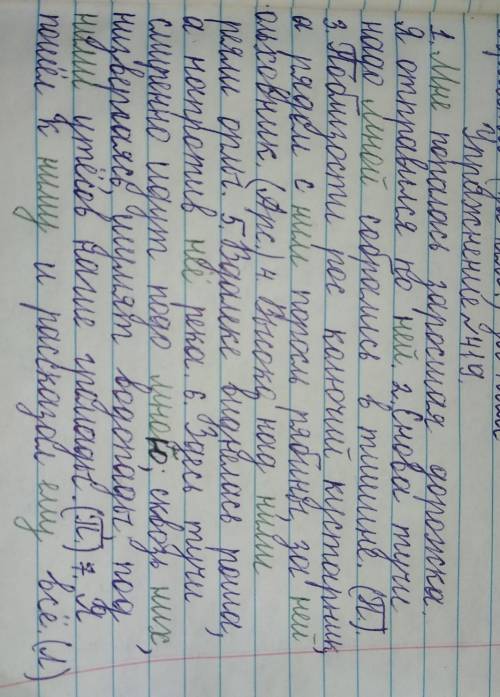 Упражнение №419.
1. Мне попалась заросшая дорожка.
Я отправился по ней. 2. Снова тучи
надо мной собрались в тишине. (П).
3. Поблизости рос колючий кустарник,
а рядом с ним поросль рябины, за ней
ольховник. (Арс.) 4. Высоко над ними
реял орёл. 5. Вдалеке виднелась роща,
а напротив неё река. 6. Здесь тучи
смиренно идут подо мною, сквозь них,
низвергаясь, шумят водопады. под
ними утёсов нагие громады. (П) 7. Я
пошёл к нему и рассказал ему всё. (Л)